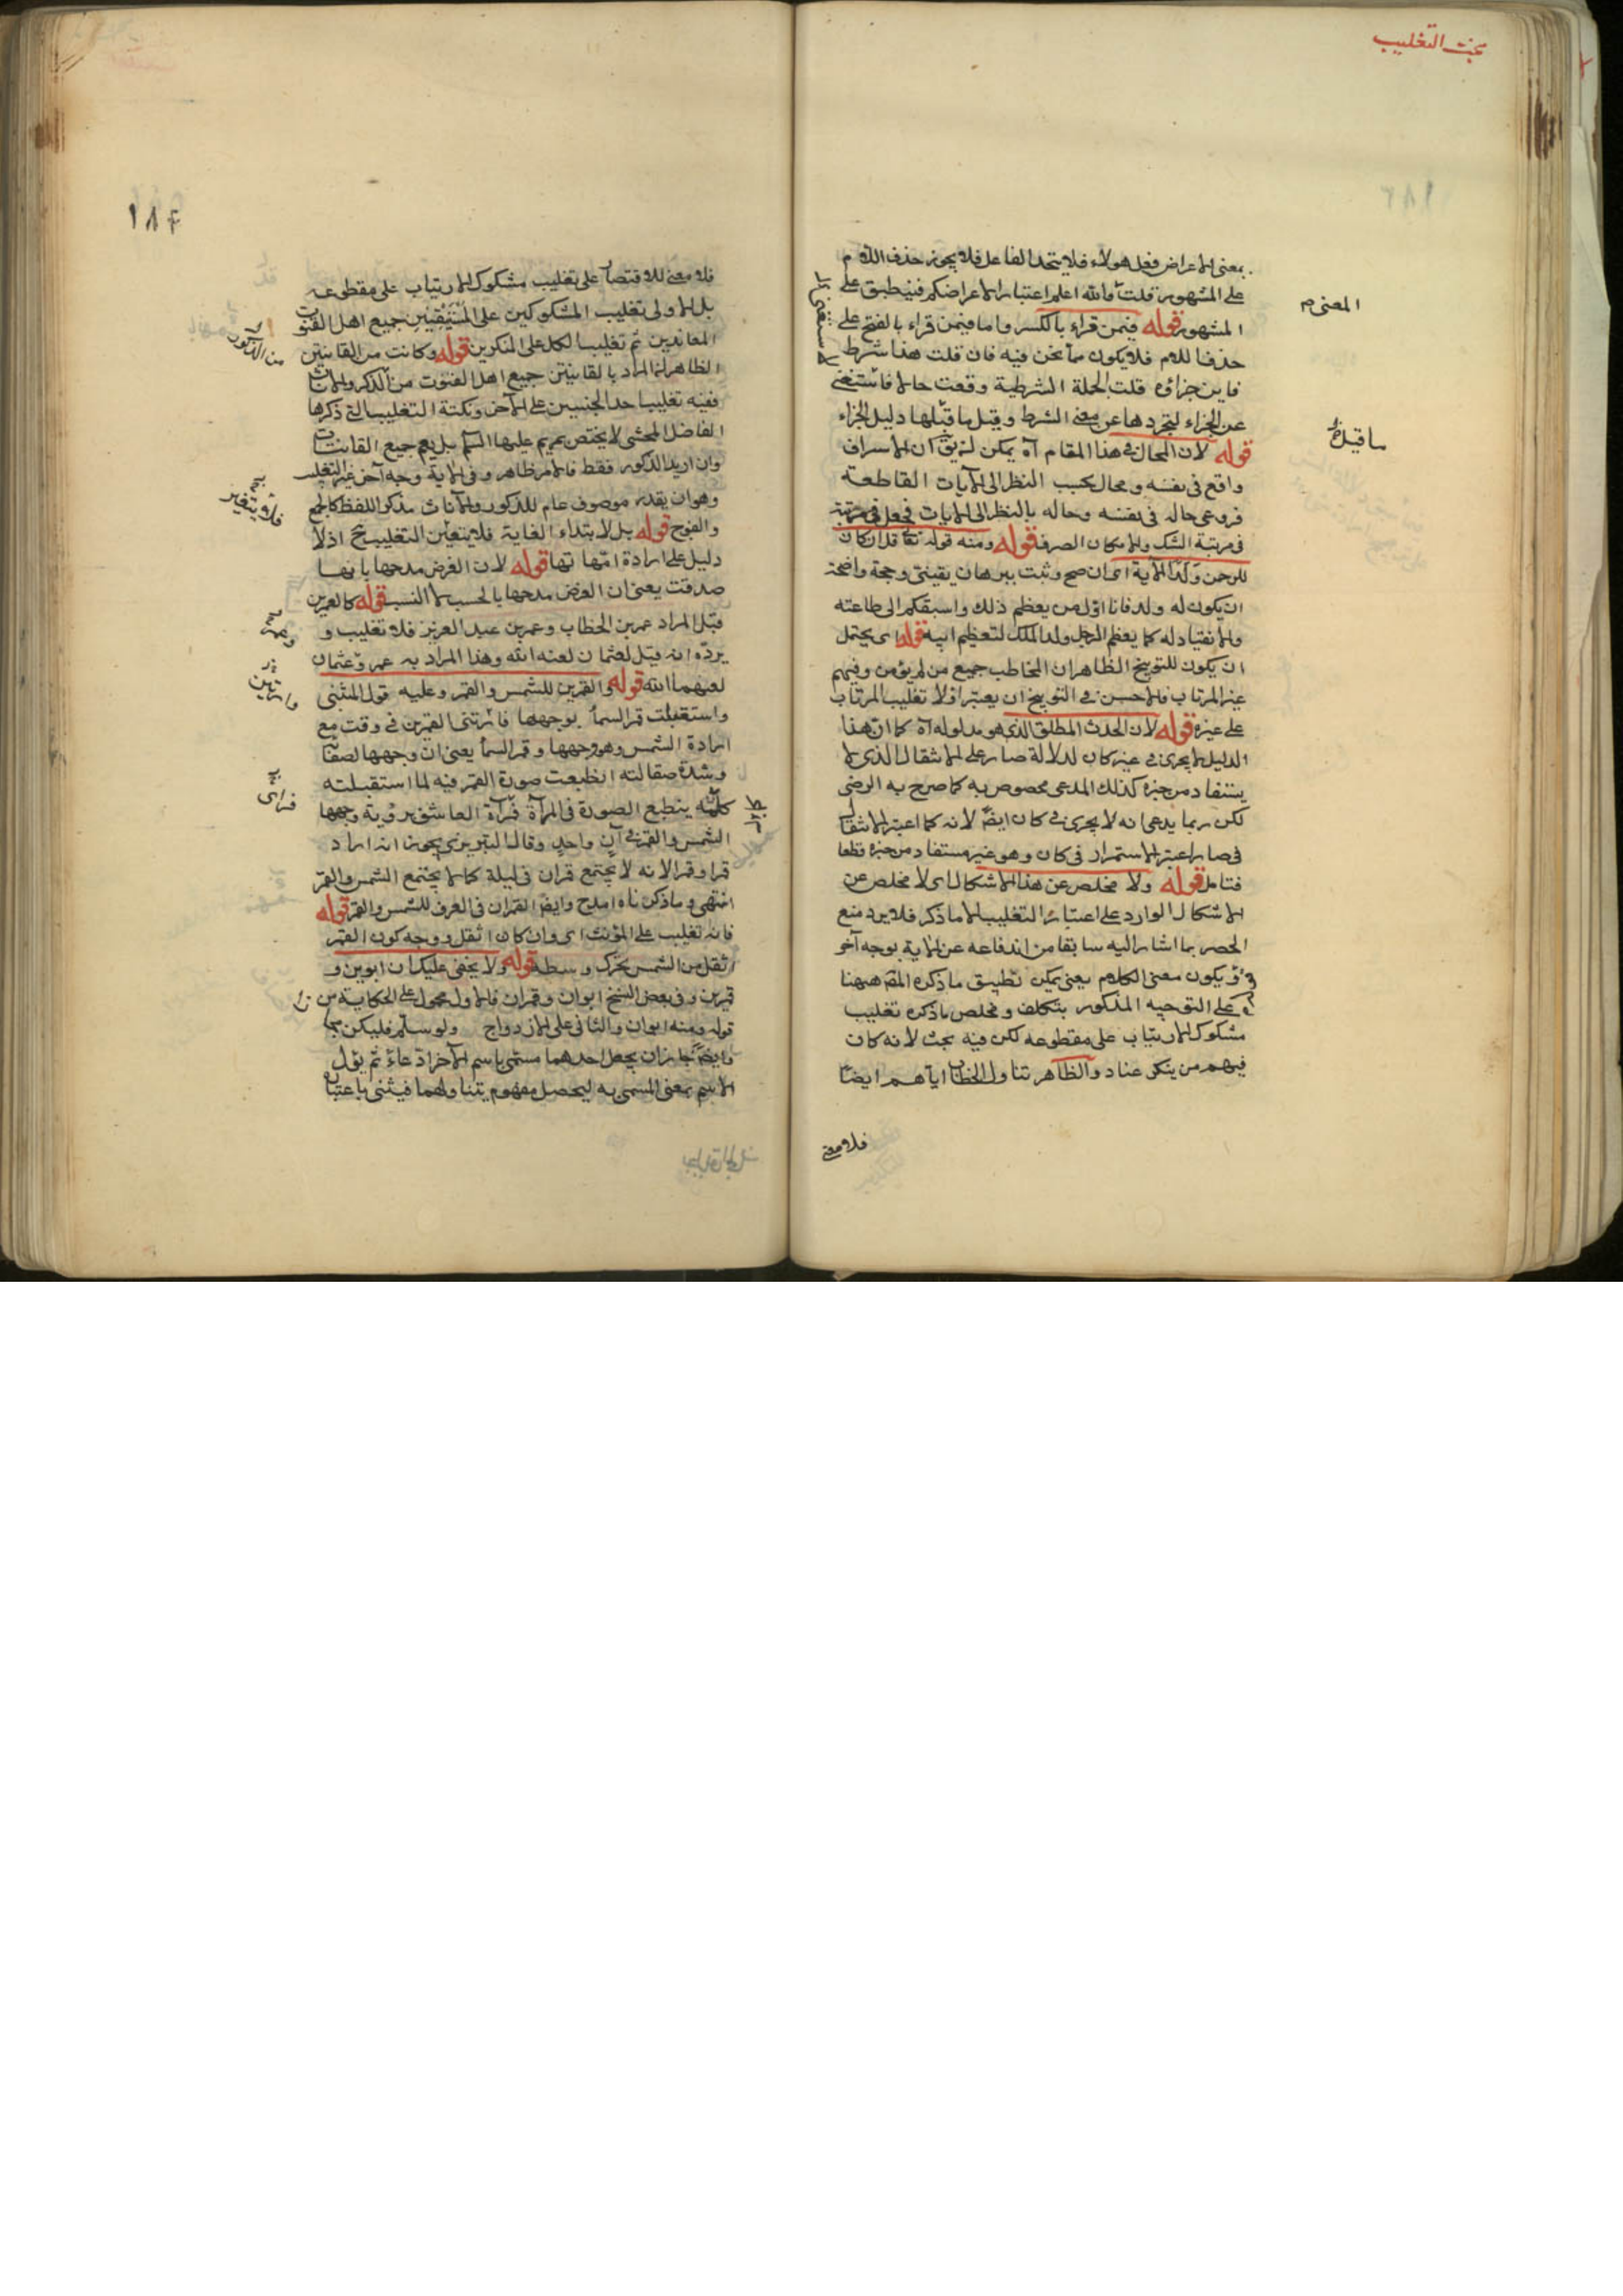 بحث التغليب
بمعنى الاعراض فعل هولاء فلا يتحد الفاعل فلا يجوز حذف اللام
على المشهور قلت والله اعلم اعتبار الاعراضكم فينطبق على
المشهور قوله فيمن قراء بالكسر واما فيمن قراء بالفتح على
حذف اللام فلا يكون مما نحن فيه فان قلت هذا شرط
فاين جزاؤه قلت الجملة الشرطية وقعت حالا فاستغنى
عن الجزاء لتجردها عن معنى الشرط وقيل ما قبلها دليل الجزاء
قوله لان المحال في هذا المقام آه يمكن ان يق ان الاسراف
واقع في نفسه ومحال بحسب النظر الى الآيات القاطعة
فروعى حاله في نفسه وحاله بالنظر الى الايات فجعل في مرتبة
في مرتبة الشك والامكان الصرف قوله ومنه قوله تعا قل ان كان
للرحمن ولد الآية اى ان صح وثبت ببرهان يقينى وحجة واضحة
ان يكون له ولد فانا اول من يعظم ذلك واسبقكم الى طاعته
والانقياد له كما يعظم الرجل ولد الملك لتعظيم ابيه قوله اى يحتمل
ان يكون للتوبيخ الظاهر ان المخاطب جميع من لم يؤمن وفيهم
غير المرتاب فالاحسن في التوبيخ ان يعتبر اولا تغليب المرتاب
على غيره قوله لان الحدث المطلق الذى هو مدلوله آه كما ان هذا
الدليل لا يجرى في غير كان لدلالة صار على الانتقال الذى لا
يستفاد من خبره كذلك المدعى مخصوص به كما صرح به الرضى
لكن ربما يدعى انه لا يجرى في كان ايضا لانه كما اعتبر الانتقال
في صار اعتبر الاستمرار في كان وهو غير مستفاد من خبره قطعا
فتامل قوله ولا مخلص عن هذا الاشكال اى لا مخلص عن
الاشكال الوارد على اعتبار التغليب الا ما ذكر فلا يرد منع
الحصر بما اشار اليه سابقا من اندفاعه عن الاية بوجه آخر
ويكون معنى الكلام يعنى يمكن تطبيق ما ذكره المص ههنا
على التوجيه المذكور بتكلف ومخلص ما ذكره تغليب
مشكوك الارتياب على مقطوعه لكن فيه بحث لانه كان
فيهم من ينكر عناد والظاهر تناول الخطاب اياهم ايضا
فلا معنى
المعنى م
ما قبله
١٨٤
فلا معنى للاقتصار على تغليب مشكوك الارتياب على مقطوعه
بل الاولى تغليب المشكوكين على المتيقنين جميع اهل القنوت
المعاندين ثم تغليب الكل على المنكرين قوله وكانت من القانتين
الظاهر ان المراد بالقانتين جميع اهل القنوت من الذكر والاناث
ففيه تغليب احد الجنسين على الآخر ونكتة التغليب التى ذكرها
الفاضل المحشى لا يختص بمريم عليها السلم بل يعم جميع القانتات
وان اريد الذكور فقط فالامر ظاهر وفى الاية وجه آخر غير التغليب
وهو ان يقدر موصوف عام للذكور والاناث مذكر اللفظ كالجمع
والفوج قوله بل لابتداء الغاية فلا يتعين التغليب ح اذ لا
دليل على ارادة امهاتها قوله لان الغرض مدحها بانها
صدقت يعنى ان الغرض مدحها بالحسب لا النسب قوله كالعمرين
قيل المراد عمر بن الخطاب وعمر بن عبد العزيز فلا تغليب و
يرده انه قيل لعثمان لعنه الله وهذا المراد به عمر وعثمان
لعنهما الله قوله والقمرين للشمس والقمر وعليه قول المتنبى
واستقبلت قمر السما بوجهها فارتنى القمرين فى وقت مع
ارادة الشمس وهو وجهها وقمر السما يعنى ان وجهها لصفائه
وشدة صقالته انطبعت صورة القمر فيه لما استقبلته
كما ينطبع الصورة فى المرآة فرآه العاشق برؤية وجهها
الشمس والقمر فى آن واحد وقال التبريزى يجوز انه اراد
قمرا وقمرا لانه لا يجتمع قمران فى ليلة كما لا يجتمع الشمس والقمر
انتهى وما ذكرناه املح وايضا القمران فى العرف للشمس والقمر قوله
فانه تغليب على المؤنث اى وان كان اثقل ووجه كون القمر
اثقل من الشمس تحرك وسطه قوله ولا يخفى عليك ان ابوين و
قمرين وفى بعض النسخ ابوان وقمران فالاول محمول على الحكاية من
قوله ومنه ابوان والثانى على الازدواج ولو سلم فليكن
وايضا جاز ان يجعل احدهما مسمى باسم الآخر ادعاء ثم يؤل
الاسم بمعنى المسمى به ليحصل مفهوم يتناولهما فيثنى باعتبار